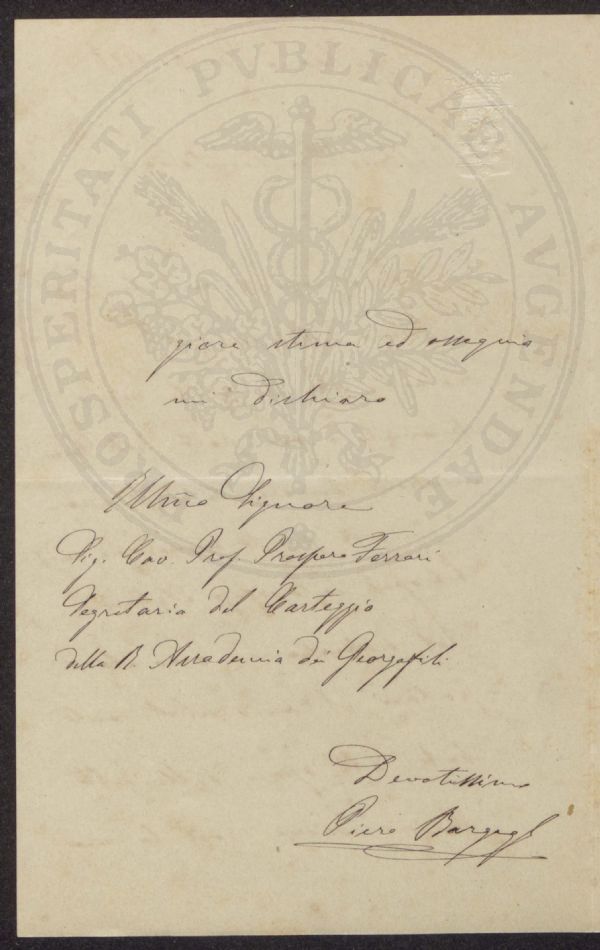 PROSPERITATI PVBLICAE AVGENDAE
giore stima ed ossequio
mi dichiaro
Illm̃o Signore
Sig. Cav. Prof. Prospero Ferrari
Segretario del Carteggio
della R. Accademia dei Georgofili
Devotissimo
Piero Bargagli